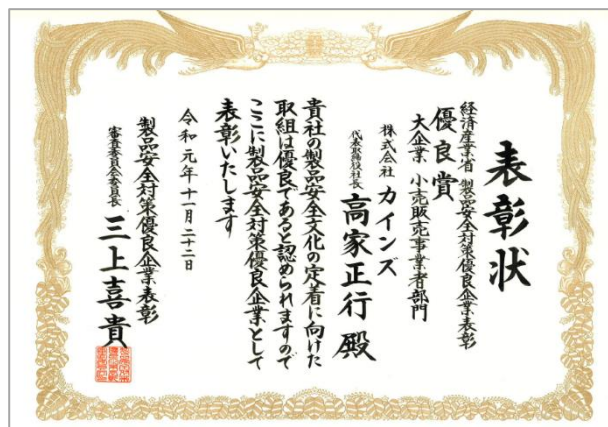 表彰状
経済産業省 製品安全対策優良企業表彰
優良賞
大企業 小売販売事業者部門
株式会社 カインズ
代表取締役社長 高家正行 殿
貴社の製品安全文化の定着に向けた
取組は優良であると認められますので
ここに製品安全対策優良企業として
表彰いたします
令和元年十一月二十二日
製品安全対策優良企業表彰
審査委員会委員長 三上喜貴